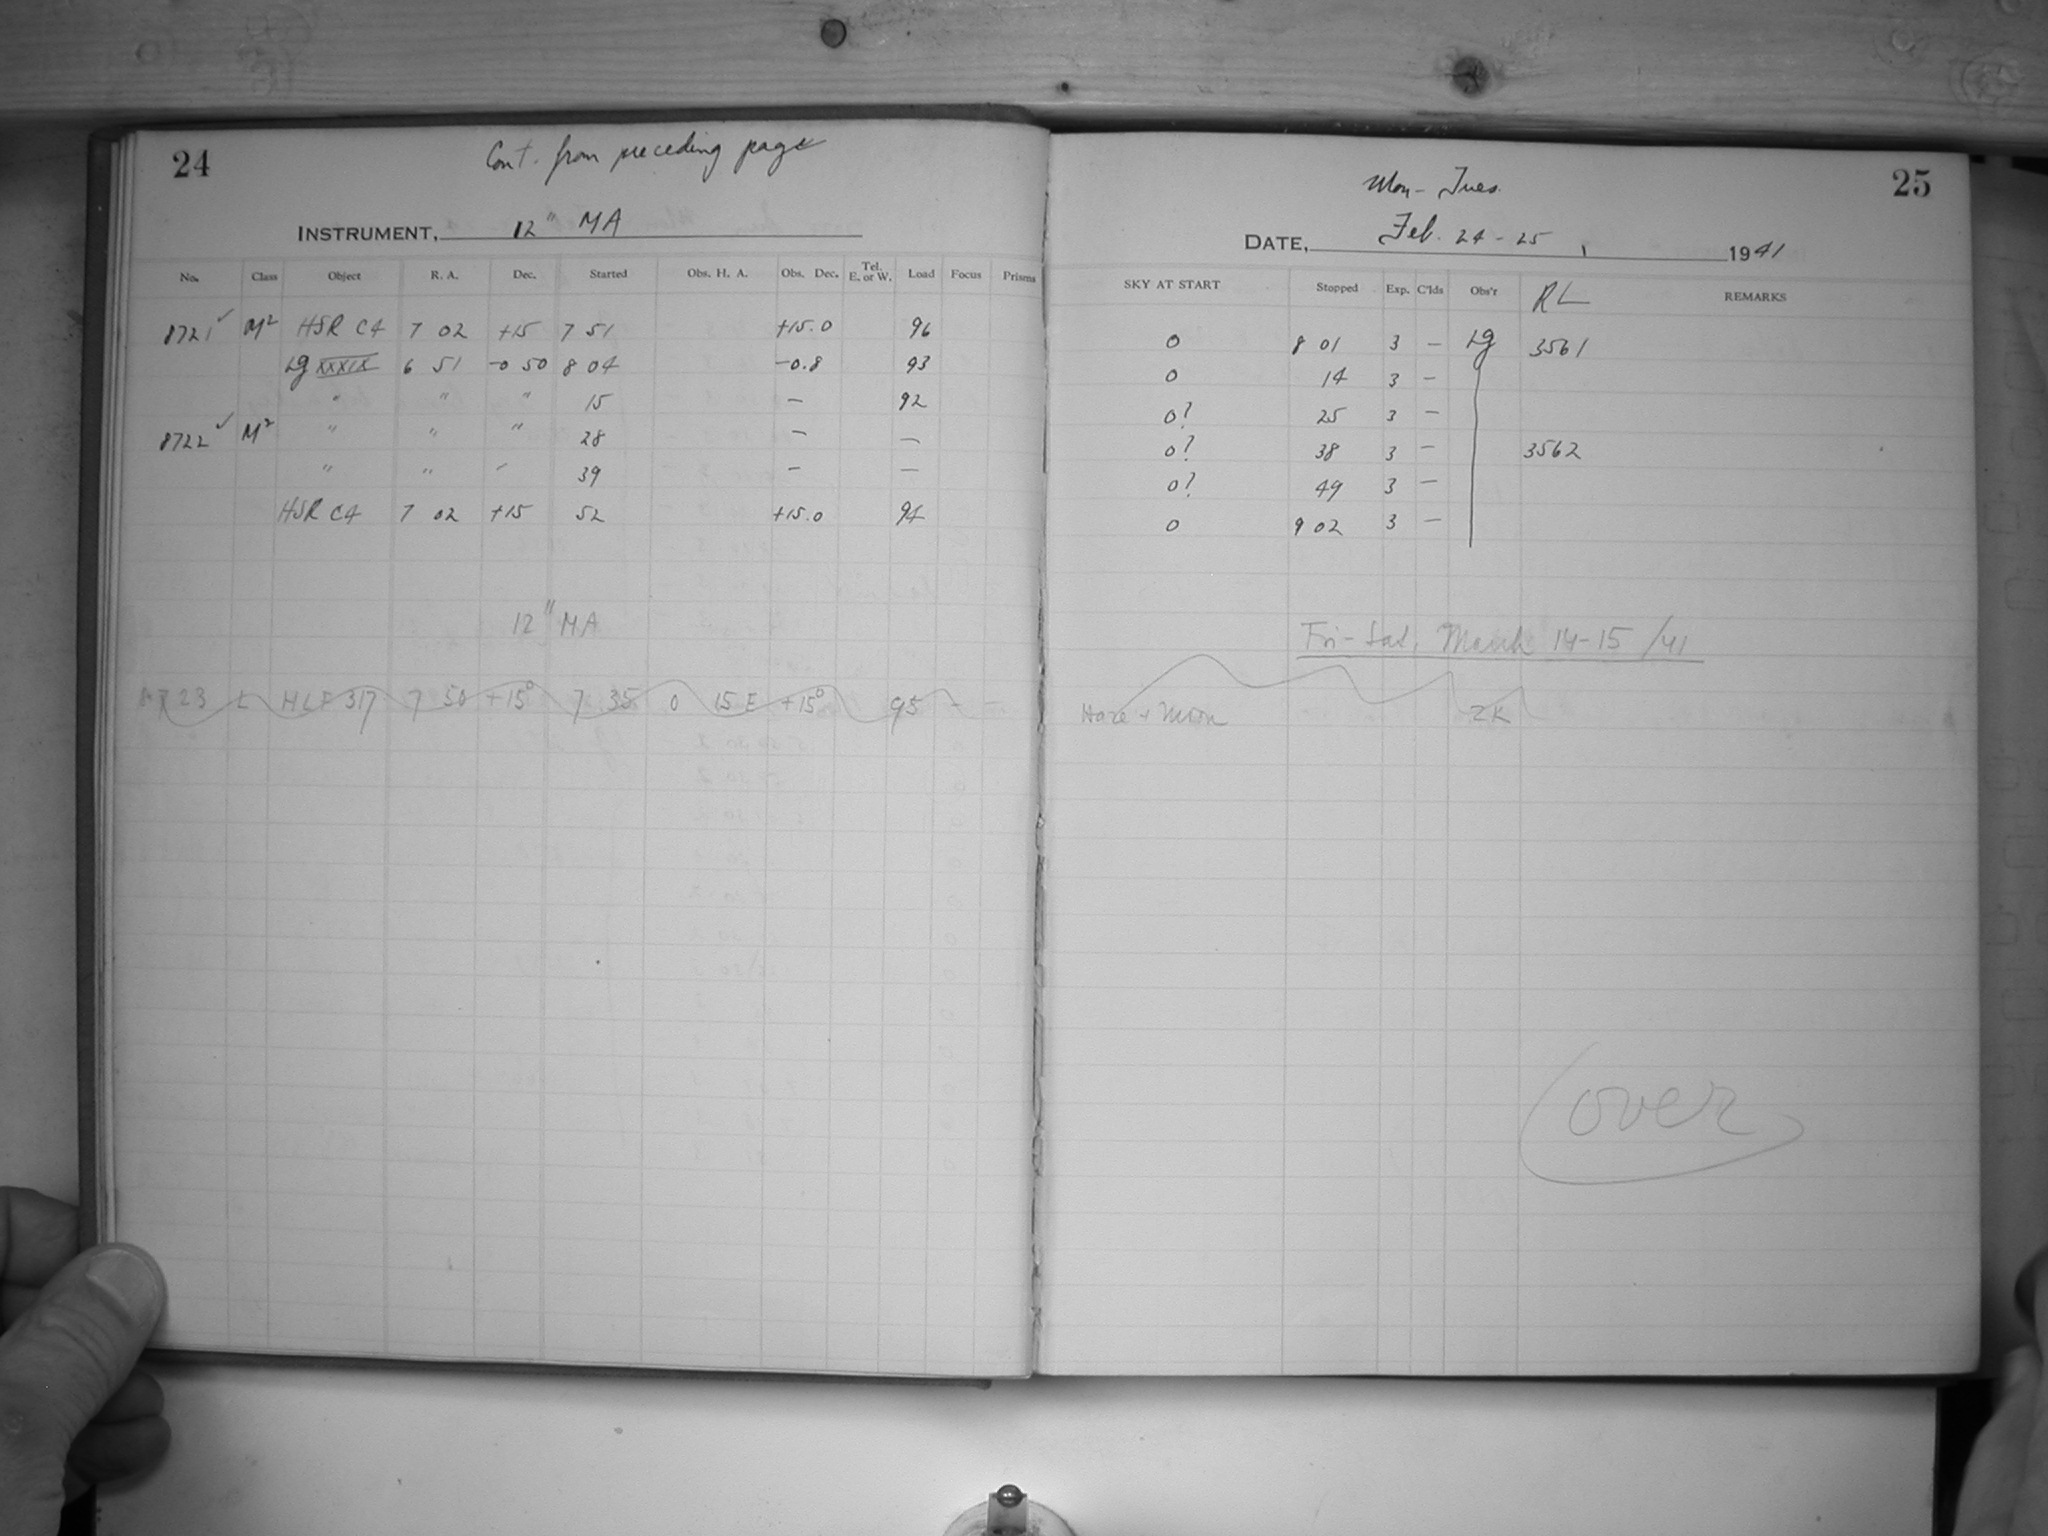 24
Cont. from preceding page
INSTRUMENT, 12" MA
No. Class Object R. A. Dec. Started Obs. H. A. Obs. Dec. Tel. E. or W. Load Focus Prisms
8721 ✓ M² HSR C4 7 02 +15 7 51 +15.0 96
Lg XXXIX 6 51 -0 50 8 04 -0.8 93
" " " 15 — 92
8722 ✓ M² " " " 28 — —
" " " 39 — —
HSR C4 7 02 +15 52 +15.0 94
12" MA
8723 L HLF 317 7 50 +15° 7 35 0 15 E +15° 95 - -
25
Mon - Tues.
DATE, Feb. 24 - 25, 1941
SKY AT START Stopped Exp. C'lds Obs'r RL REMARKS
0 8 01 3 — Lg 3561
0 14 3 —
0? 25 3 —
0? 38 3 — 3562
0? 49 3 —
0 9 02 3 —
Fri - Sat. March 14-15 /41
Haze + Moon ZK
over